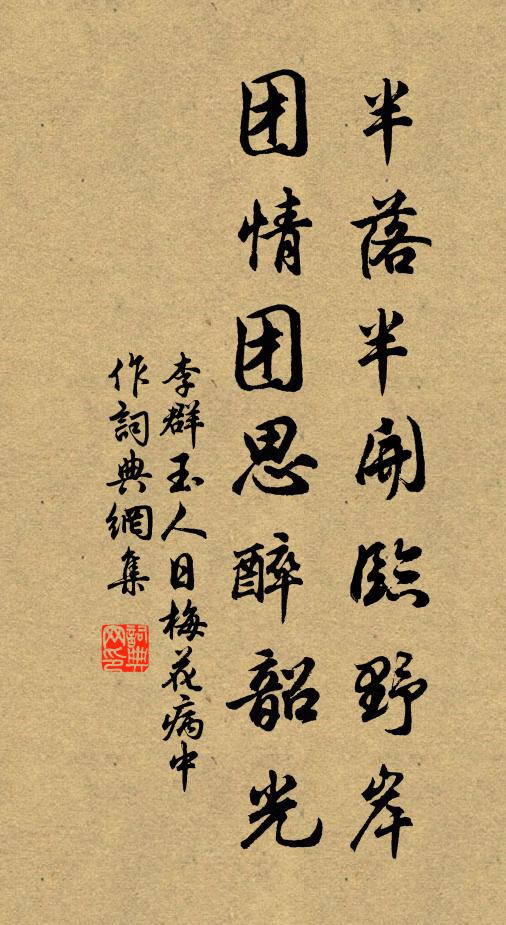 半落半開臨野岸
团情团思醉韶光
李群玉人日梅花病中
作詞典網集
詞典
网印